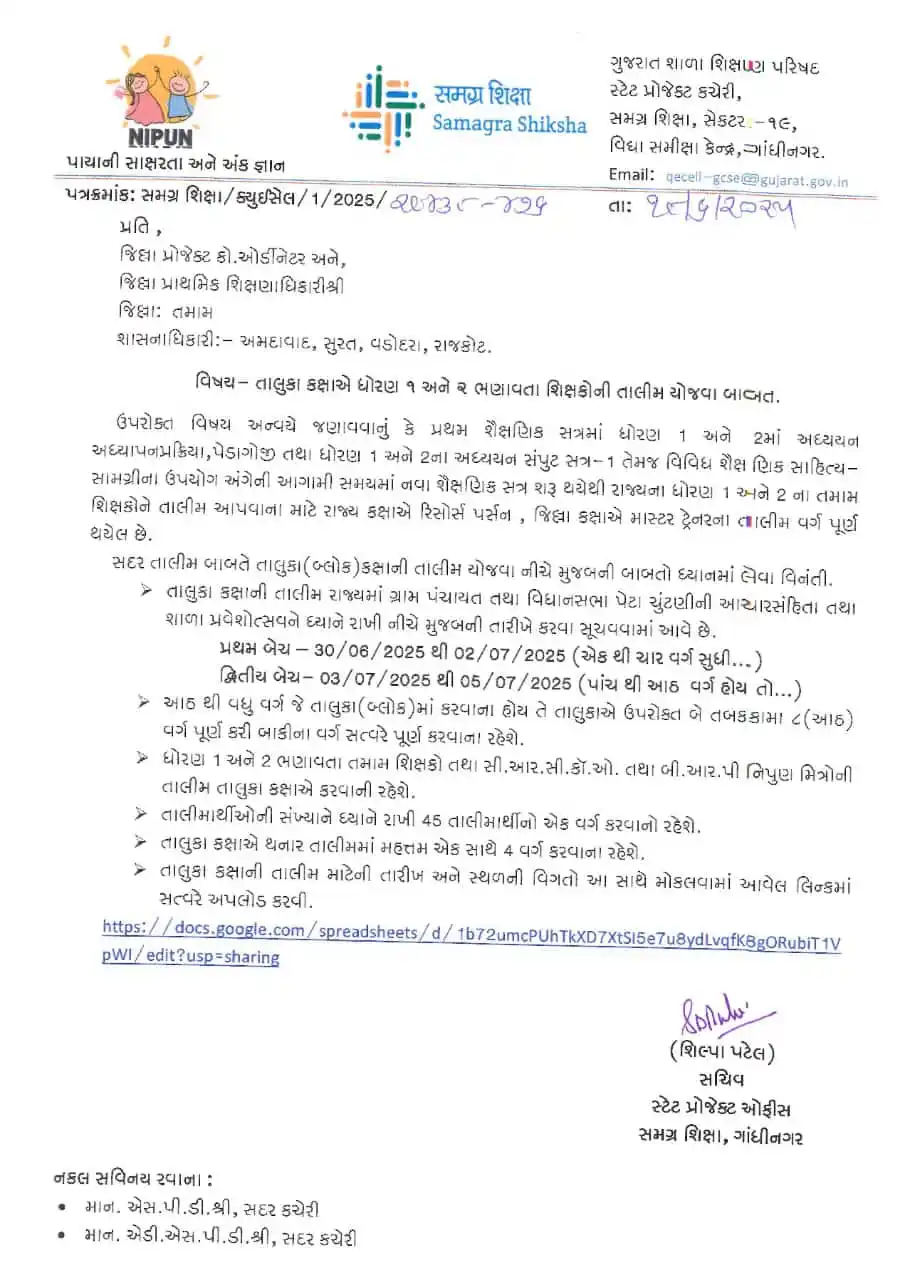 ગુજરાત શાળા શિક્ષણ પરિષદ
સ્ટેટ પ્રોજેક્ટ કચેરી,
સમગ્ર શિક્ષા, સેક્ટર -૧૯,
વિદ્યા સમીક્ષા કેન્દ્ર,-ગાંધીનગર.
Email: qecell-gcse@gujarat.gov.in
NIPUN
પાયાની સાક્ષરતા અને અંક જ્ઞાન
समग्र शिक्षा
Samagra Shiksha
પત્રક્રમાંક: સમગ્ર શિક્ષા/ક્યુઈસેલ/1/2025/
તા:
પ્રતિ ,
જિલ્લા પ્રોજેક્ટ કો.ઓર્ડીનેટર અને,
જિલ્લા પ્રાથમિક શિક્ષણાધિકારીશ્રી
જિલ્લા: તમામ
શાસનાધિકારી:- અમદાવાદ, સુરત, વડોદરા, રાજકોટ.
વિષય- તાલુકા કક્ષાએ ધોરણ ૧ અને ૨ ભણાવતા શિક્ષકોની તાલીમ યોજવા બાબત.
ઉપરોક્ત વિષય અન્વયે જણાવવાનું કે પ્રથમ શૈક્ષણિક સત્રમાં ધોરણ 1 અને 2માં અધ્યયન
અધ્યાપનપ્રક્રિયા,પેડાગોજી તથા ધોરણ 1 અને 2ના અધ્યયન સંપુટ સત્ર-1 તેમજ વિવિધ શૈક્ષણિક સાહિત્ય-
સામગ્રીના ઉપયોગ અંગેની આગામી સમયમાં નવા શૈક્ષણિક સત્ર શરૂ થયેથી રાજ્યના ધોરણ 1 અને 2 ના તમામ
શિક્ષકોને તાલીમ આપવાના માટે રાજ્ય કક્ષાએ રિસોર્સ પર્સન , જિલ્લા કક્ષાએ માસ્ટર ટ્રેનરના તાલીમ વર્ગ પૂર્ણ
થયેલ છે.
સદર તાલીમ બાબતે તાલુકા(બ્લોક)કક્ષાની તાલીમ યોજવા નીચે મુજબની બાબતો ધ્યાનમાં લેવા વિનંતી.
➢ તાલુકા કક્ષાની તાલીમ રાજ્યમાં ગ્રામ પંચાયત તથા વિધાનસભા પેટા ચુંટણીની આચારસંહિતા તથા
શાળા પ્રવેશોત્સવને ધ્યાને રાખી નીચે મુજબની તારીખે કરવા સૂચવવામાં આવે છે.
પ્રથમ બેચ - 30/06/2025 થી 02/07/2025 (એક થી ચાર વર્ગ સુધી...)
દ્વિતીય બેચ- 03/07/2025 થી 05/07/2025 (પાંચ થી આઠ વર્ગ હોય તો...)
➢ આઠ થી વધુ વર્ગ જે તાલુકા(બ્લોક)માં કરવાના હોય તે તાલુકાએ ઉપરોક્ત બે તબક્કામા ૮(આઠ)
વર્ગ પૂર્ણ કરી બાકીના વર્ગ સત્વરે પૂર્ણ કરવાના રહેશે.
➢ ધોરણ 1 અને 2 ભણાવતા તમામ શિક્ષકો તથા સી.આર.સી.કૉ.ઓ. તથા બી.આર.પી નિપુણ મિત્રોની
તાલીમ તાલુકા કક્ષાએ કરવાની રહેશે.
➢ તાલીમાર્થીઓની સંખ્યાને ધ્યાને રાખી 45 તાલીમાર્થીનો એક વર્ગ કરવાનો રહેશે.
➢ તાલુકા કક્ષાએ થનાર તાલીમમાં મહત્તમ એક સાથે 4 વર્ગ કરવાના રહેશે.
➢ તાલુકા કક્ષાની તાલીમ માટેની તારીખ અને સ્થળની વિગતો આ સાથે મોકલવામાં આવેલ લિન્કમાં
સત્વરે અપલોડ કરવી.
https://docs.google.com/spreadsheets/d/1b72umcPUhTkXD7XtSI5e7u8ydLvqfK8gORubiT1V
pWI/edit?usp=sharing
(શિલ્પા પટેલ)
સચિવ
સ્ટેટ પ્રોજેક્ટ ઓફીસ
સમગ્ર શિક્ષા, ગાંધીનગર
નકલ સવિનય રવાના :
• માન. એસ.પી.ડી.શ્રી, સદર કચેરી
• માન. એડી.એસ.પી.ડી.શ્રી, સદર કચેરી